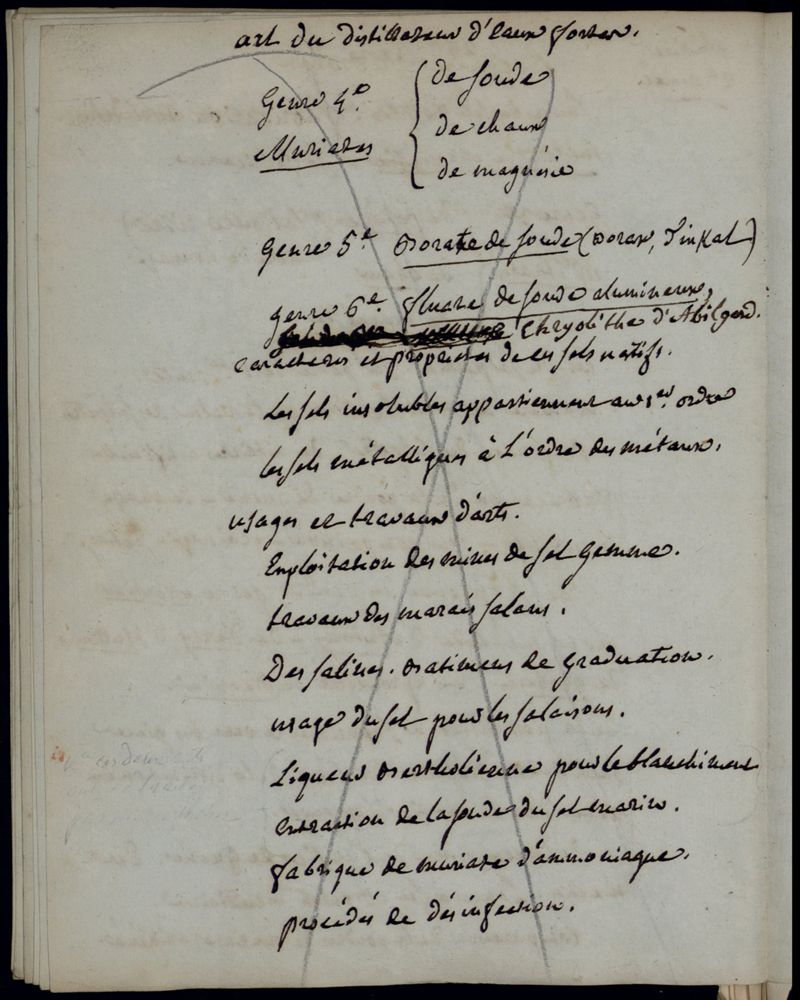 art du distillateur d'eaux fortes.
Genre 4e.
Muriates
{ de soude
de chaux
de magnésie
Genre 5e. Borate de soude (Borax, Tinkal)
Genre 6e. fluate de soude alumineux,
Chryolithe d'Abilgard.
Caracteres et proprietes de ces sels natifs.
Les sels insolubles appartiennent au 1er. ordre
les sels métalliques à L'ordre des métaux.
usages et travaux d'arts.
Exploitation des mines de sel Gemme.
travaux des marais salans.
Des salines. Batimens de graduation.
usage du sel pour les salaisons.
Liqueur Bertholienne pour le blanchiment
Extraction de la soude du sel marin.
fabrique de muriate d'ammoniaque.
procédés de désinfection.